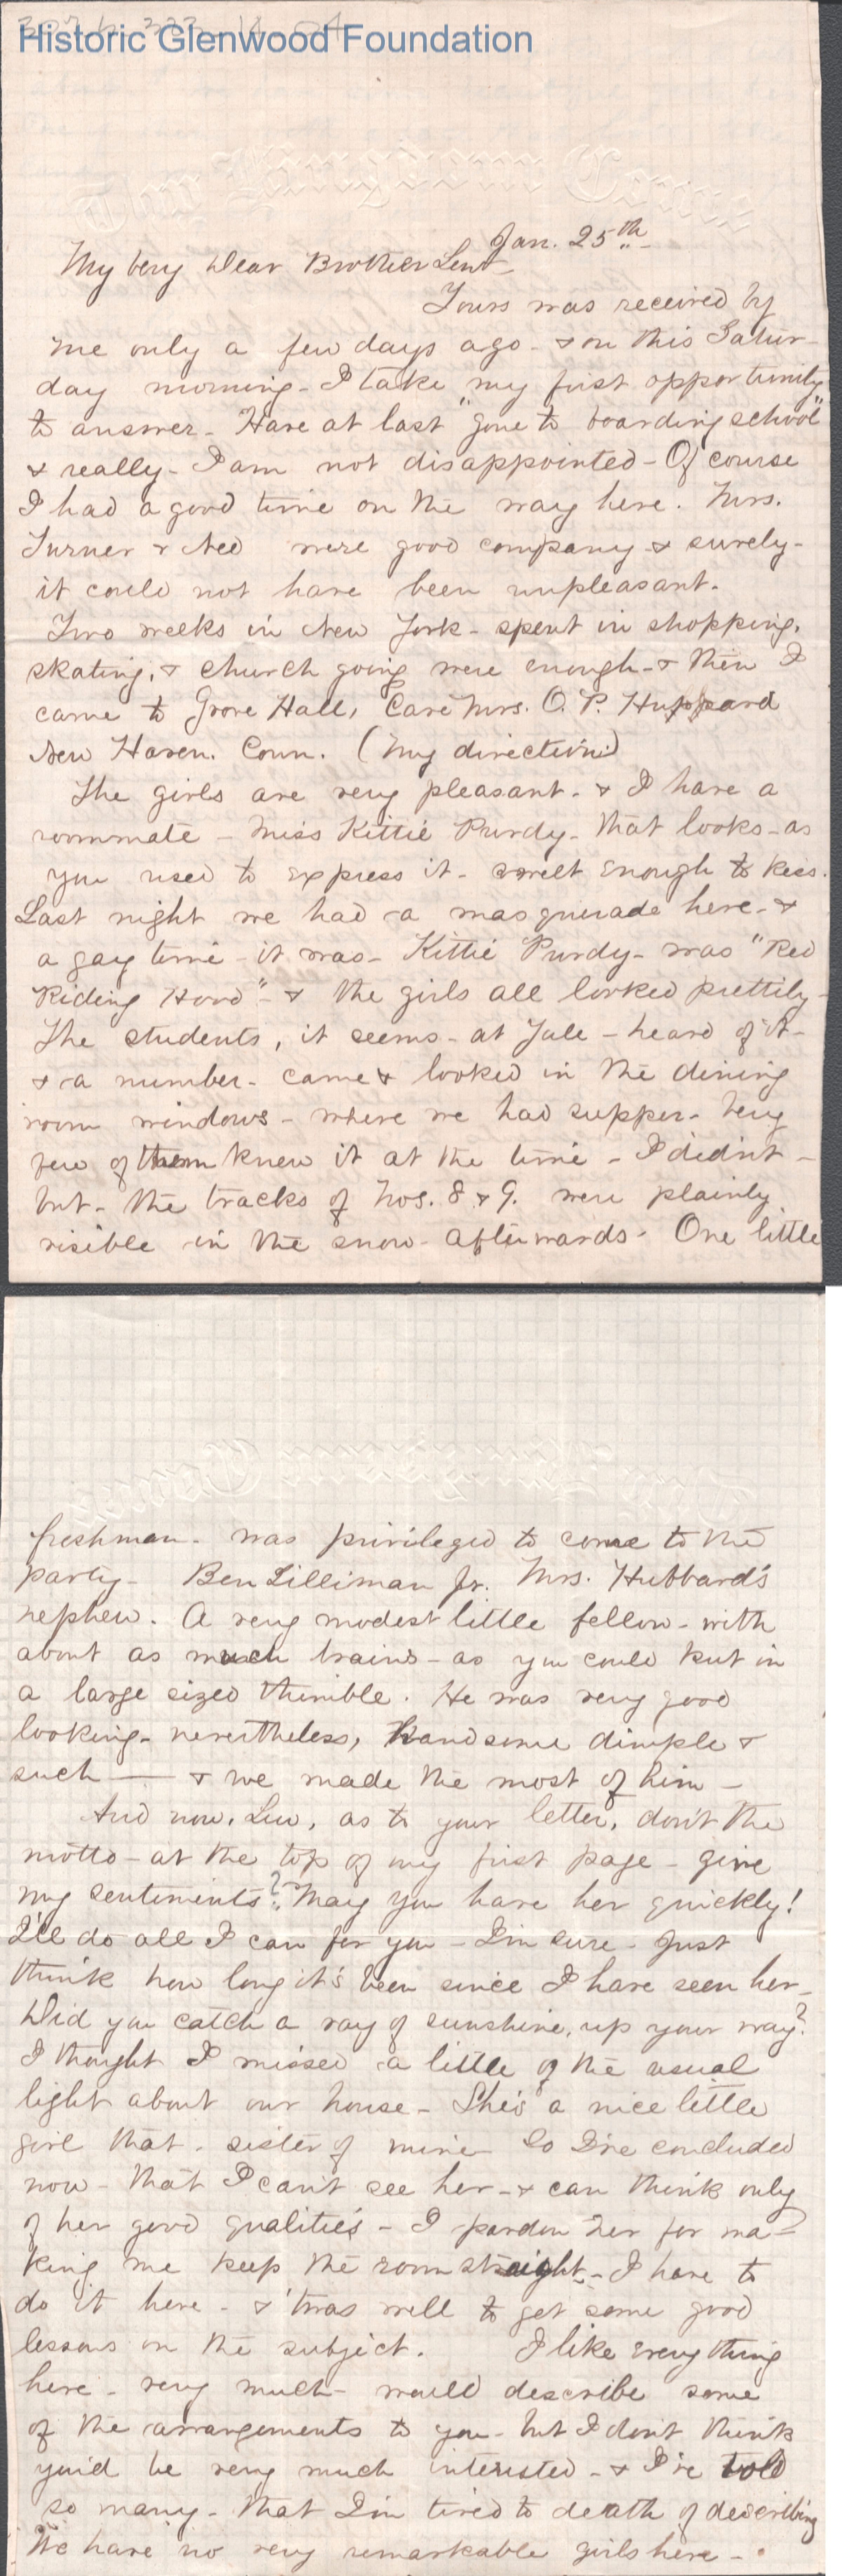 Historic Glenwood Foundation
Thy Kingdom Come
Jan. 25th
My very Dear Brother Lew -
Yours was received by
me only a few days ago - & on this Satur-
day morning - I take my first opportunity
to answer - Have at last "gone to boarding school"
& really - I am not disappointed - Of course
I had a good time on the way here. Mrs.
Turner & Ned were good company - & surely -
it could not have been unpleasant.
Two weeks in New York - spent in shopping,
skating, & church going were enough - & then I
came to Grove Hall, Care Mrs. O. P. Hubbard
New Haven. Conn. (My direction)
The girls are very pleasant - & I have a
roommate - Miss Kittie Purdy - that looks - as
you used to express it - sweet enough to kiss.
Last night we had a masquerade here - &
a gay time - it was - Kittie Purdy - was "Red
Riding Hood" - & the girls all looked prettily -
The students, it seems - at Yale - heard of it -
& a number - came & looked in the dining
room windows - where we had supper - Very
few of them knew it at the time - I didn't -
but - the tracks of Nos. 8 & 9. were plainly
visible in the snow - afterwards - One little
freshman - was privileged to come to the
party - Ben Silliman Jr. Mrs. Hubbard's
nephew. A very modest little fellow - with
about as much brains - as you could put in
a large sized thimble. He was very good
looking - nevertheless, handsome dimple &
such — & we made the most of him -
And now, Lew, as to your letter, don't the
motto - at the top of my first page - give
my sentiments? May you have her quickly!
I'll do all I can for you - I'm sure - Just
think how long it's been since I have seen her -
Did you catch a ray of sunshine, up your way?
I thought I missed a little of the usual
light about our house - She's a nice little
girl that - sister of mine - So I've concluded
now - that I can't see her - & can think only
of her good qualities - I pardon her for ma-
king me keep the room straight - I have to
do it here - & 'twas well to get some good
lessons on the subject. I like everything
here - very much - would describe some
of the arrangements to you - but I don't think
you'd be very much interested - & I've told
so many - that I'm tired to death of describing
We have no very remarkable girls here -